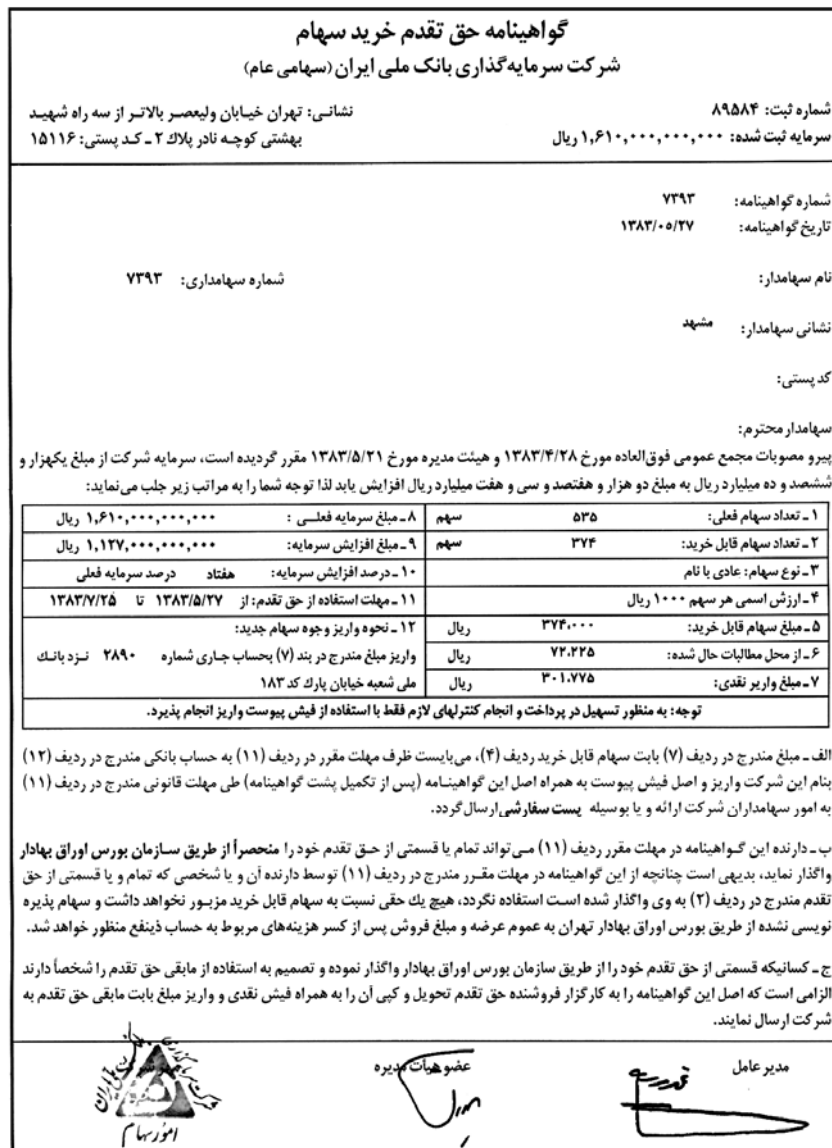 گواهینامه حق تقدم خرید سهام
شرکت سرمایه‌گذاری بانک ملی ایران (سهامی عام)
شماره ثبت: ۸۹۵۸۴
سرمایه ثبت شده: ۱,۶۱۰,۰۰۰,۰۰۰,۰۰۰ ریال
نشانـی: تهران خیـابان ولیعصـر بالاتـر از سه راه شهیـد
بهشتی کوچـه نادر پلاك ۲ ـ کـد پستی: ۱۵۱۱۶
شماره گواهینامه: ۷۳۹۳
تاریخ گواهینامه: ۱۳۸۳/۰۵/۲۷
نام سهامدار:
شماره سهامداری: ۷۳۹۳
نشانی سهامدار: مشهد
کد پستی:
سهامدار محترم:
پیرو مصوبات مجمع عمومی فوق‌العاده مورخ ۱۳۸۳/۴/۲۸ و هیئت مدیره مورخ ۱۳۸۳/۵/۲۱ مقرر گردیده است، سرمایه شرکت از مبلغ یکهزار و
ششصد و ده میلیارد ریال به مبلغ دو هزار و هفتصد و سی و هفت میلیارد ریال افزایش یابد لذا توجه شما را به مراتب زیر جلب می‌نماید:
۱ ـ تعداد سهام فعلی: ۵۳۵ سهم
۲ ـ تعداد سهام قابل خرید: ۳۷۴ سهم
۳ ـ نوع سهام: عادی با نام
۴ ـ ارزش اسمی هر سهم ۱۰۰۰ ریال
۵ ـ مبلغ سهام قابل خرید: ۳۷۴،۰۰۰ ریال
۶ ـ از محل مطالبات حال شده: ۷۲،۲۲۵ ریال
۷ ـ مبلغ واریر نقدی: ۳۰۱،۷۷۵ ریال
۸ ـ مبلغ سرمایه فعلـی : ۱,۶۱۰,۰۰۰,۰۰۰,۰۰۰ ریال
۹ ـ مبلغ افزایش سرمایه: ۱,۱۲۷,۰۰۰,۰۰۰,۰۰۰ ریال
۱۰ ـ درصد افزایش سرمایه: هفتاد درصد سرمایه فعلی
۱۱ ـ مهلت استفاده از حق تقدم: از ۱۳۸۳/۵/۲۷ تا ۱۳۸۳/۷/۲۵
۱۲ ـ نحوه واریز وجوه سهام جدید:
واریز مبلغ مندرج در بند (۷) بحساب جـاری شماره ۲۸۹۰ نـزد بانـك
ملی شعبه خیابان پارك کد ۱۸۳
توجه: به منظور تسهیل در پرداخت و انجام کنترلهای لازم فقط با استفاده از فیش پیوست واریز انجام پذیرد.
الف ـ مبلغ مندرج در ردیف (۷) بابت سهام قابل خرید ردیف (۴)، می‌بایست ظرف مهلت مقرر در ردیف (۱۱) به حساب بانکی مندرج در ردیف (۱۲)
بنام این شرکت واریز و اصل فیش پیوست به همراه اصل این گواهینـامه (پس از تکمیل پشت گواهینامه) طی مهلت قانونی مندرج در ردیف (۱۱)
به امور سهامداران شرکت ارائه و یا بوسیله پست سفارشی ارسال گردد.
ب ـ دارنده این گـواهینامه در مهلت مقرر ردیف (۱۱) مـی‌تواند تمام یا قسمتی از حـق تقدم خود را منحصراً از طریق سـازمان بورس اوراق بهادار
واگذار نماید، بدیهی است چنانچه از این گواهینامه در مهلت مقـرر مندرج در ردیف (۱۱) توسط دارنده آن و یا شخصی که تمام و یا قسمتی از حق
تقدم مندرج در ردیف (۲) به وی واگذار شده اسـت استفاده نگردد، هیچ یك حقی نسبت به سهام قابل خرید مزبـور نخواهد داشت و سهام پذیره
نویسی نشده از طریق بورس اوراق بهادار تهران به عموم عرضه و مبلغ فروش پس از کسر هزینه‌های مربوط به حساب ذینفع منظور خواهد شد.
ج ـ کسانیکه قسمتی از حق تقدم خود را از طریق سازمان بورس اوراق بهادار واگذار نموده و تصمیم به استفاده از مابقی حق تقدم را شخصاً دارند
الزامی است که اصل این گواهینامه را به کارگزار فروشنده حق تقدم تحویل و کپی آن را به همراه فیش نقدی و واریز مبلغ بابت مابقی حق تقدم به
شرکت ارسال نمایند.
مدیر عامل
عضو هیأت مدیره
امور سهام